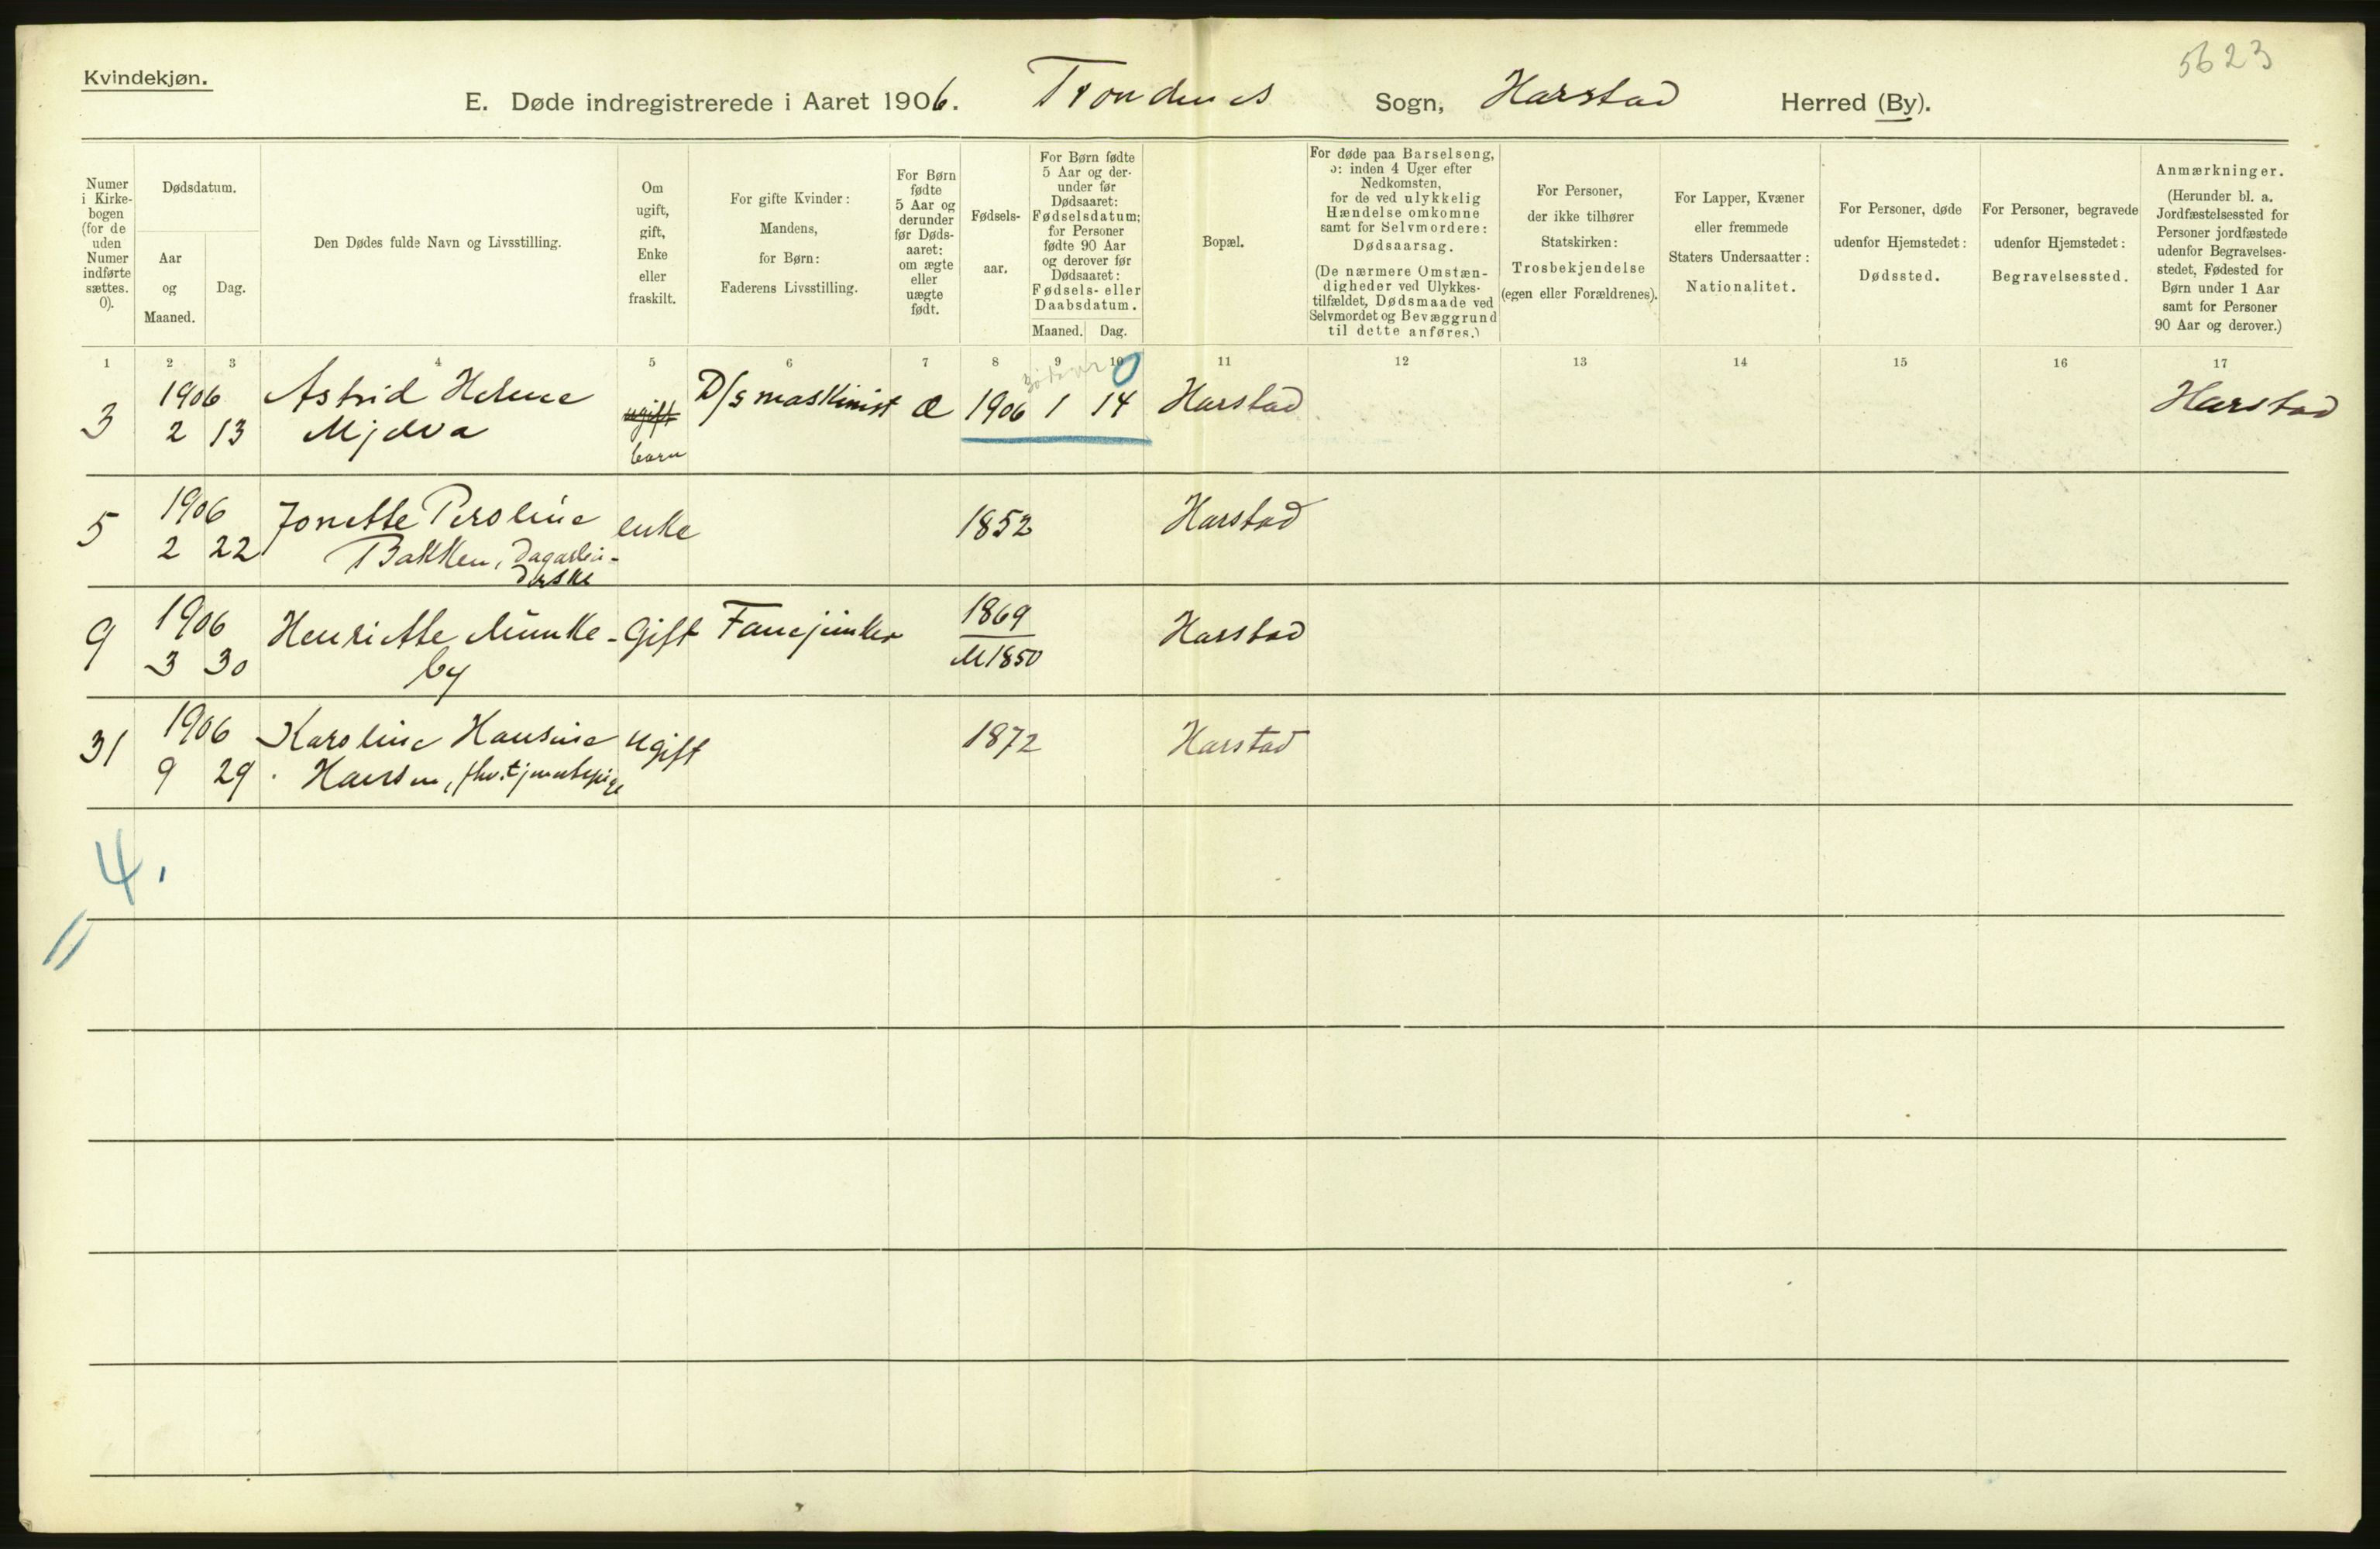 5623
Kvindekjøn.
E. Døde indregistrerede i Aaret 1906. Trondenes Sogn, Harstad Herred (By).
Numer
i Kirke-
bogen
(for de
uden
Numer
indførte
sættes.
0).
Dødsdatum.
Aar
og
Maaned.
Dag.
Den Dødes fulde Navn og Livsstilling.
Om
ugift,
gift,
Enke
eller
fraskilt.
For gifte Kvinder:
Mandens,
for Børn:
Faderens Livsstilling.
For Børn
fødte
5 Aar og
derunder
før Døds-
aaret:
om ægte
eller
uægte
født.
Fødsels-
aar.
For Børn fødte
5 Aar og der-
under før
Dødsaaret:
Fødselsdatum;
for Personer
fødte 90 Aar
og derover før
Dødsaaret:
Fødsels- eller
Daabsdatum.
Maaned. Dag.
Bopæl.
For døde paa Barselseng,
ɔ: inden 4 Uger efter
Nedkomsten,
for de ved ulykkelig
Hændelse omkomne
samt for Selvmordere:
Dødsaarsag.
(De nærmere Omstæn-
digheder ved Ulykkes-
tilfældet, Dødsmaade ved
Selvmordet og Bevæggrund
til dette anføres.)
For Personer,
der ikke tilhører
Statskirken:
Trosbekjendelse
(egen eller Forældrenes).
For Lapper, Kvæner
eller fremmede
Staters Undersaatter:
Nationalitet.
For Personer, døde
udenfor Hjemstedet:
Dødssted.
For Personer, begravede
udenfor Hjemstedet:
Begravelsessted.
Anmærkninger.
(Herunder bl. a.
Jordfæstelsessted for
Personer jordfæstede
udenfor Begravelses-
stedet, Fødested for
Børn under 1 Aar
samt for Personer
90 Aar og derover.)
1 2 3 4 5 6 7 8 9 10 11 12 13 14 15 16 17
0
3 1906 Astrid Helene ugift D/s maskinist Æ 1906 1 14 Harstad Harstad
2 13 Mjelva
barn
5 1906 Jonette Peroline enke 1852 Harstad
2 22 Bakken, Dagarbei-
derske
9 1906 Henriette Munke- Gift Fanejunker 1869 Harstad
3 30 by M 1850
31 1906 Karoline Hansine ugift 1872 Harstad
9 29 Hansen, fhv. tjenestepige
4.